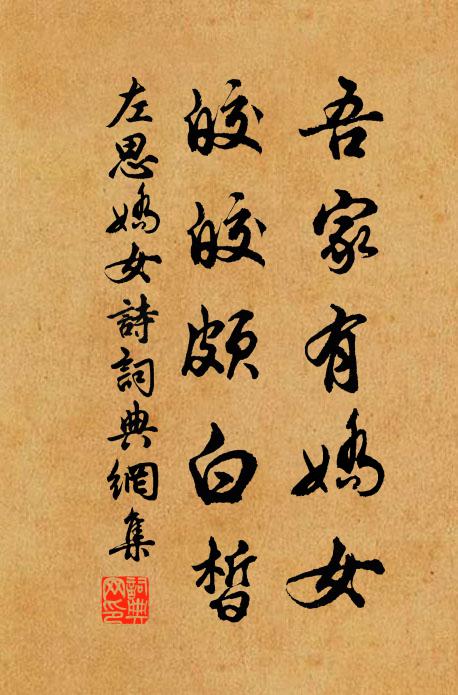 吾家有嬌女
皎皎頗白皙
左思嬌女詩詞典網集
詞典
网印